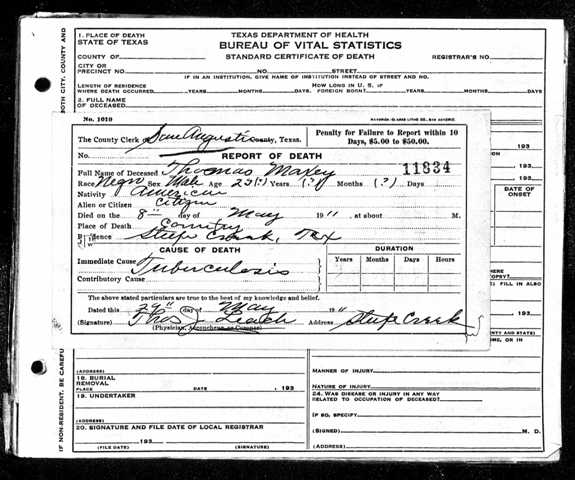 1. PLACE OF DEATH
STATE OF TEXAS
TEXAS DEPARTMENT OF HEALTH
BUREAU OF VITAL STATISTICS
STANDARD CERTIFICATE OF DEATH
COUNTY OF
REGISTRAR'S NO.
CITY OR
PRECINCT NO. NO. STREET
IF IN AN INSTITUTION, GIVE NAME OF INSTITUTION INSTEAD OF STREET AND NO.
LENGTH OF RESIDENCE
WHERE DEATH OCCURRED YEARS MONTHS DAYS
HOW LONG IN U. S. IF
FOREIGN BORN? YEARS MONTHS DAYS
2. FULL NAME
OF DECEASED
No. 1010
The County Clerk of San Augustine County, Texas.
Penalty for Failure to Report within 10
Days, $5.00 to $50.00.
No.
REPORT OF DEATH
11834
Full Name of Deceased Thomas Maxey
Race Negro Sex Male Age 23(?) Years (?) Months (?) Days
Nativity American
Alien or Citizen Citizen
Died on the 8th day of May 1911, at about M.
Place of Death Country
Residence Steep Creek, Tex
CAUSE OF DEATH
DURATION
Immediate Cause
Tuberculosis
Contributory Cause
Years Months Days Hours
The above stated particulars are true to the best of my knowledge and belief.
Dated this day of May 1911
(Signature) Thos J Leach Address Steep Creek
(Physician, Accoucheur or Coroner)
193
193
DATE OF
ONSET
(ADDRESS)
18. BURIAL
REMOVAL
PLACE DATE , 193
19. UNDERTAKER
(ADDRESS)
20. SIGNATURE AND FILE DATE OF LOCAL REGISTRAR
193
(FILE DATE) (SIGNATURE)
MANNER OF INJURY
NATURE OF INJURY
24. WAS DISEASE OR INJURY IN ANY WAY
RELATED TO OCCUPATION OF DECEASED?
IF SO, SPECIFY
(SIGNED) M. D.
(ADDRESS)
IF NON-RESIDENT, BE CAREFU
OTH CITY, COUNTY AND